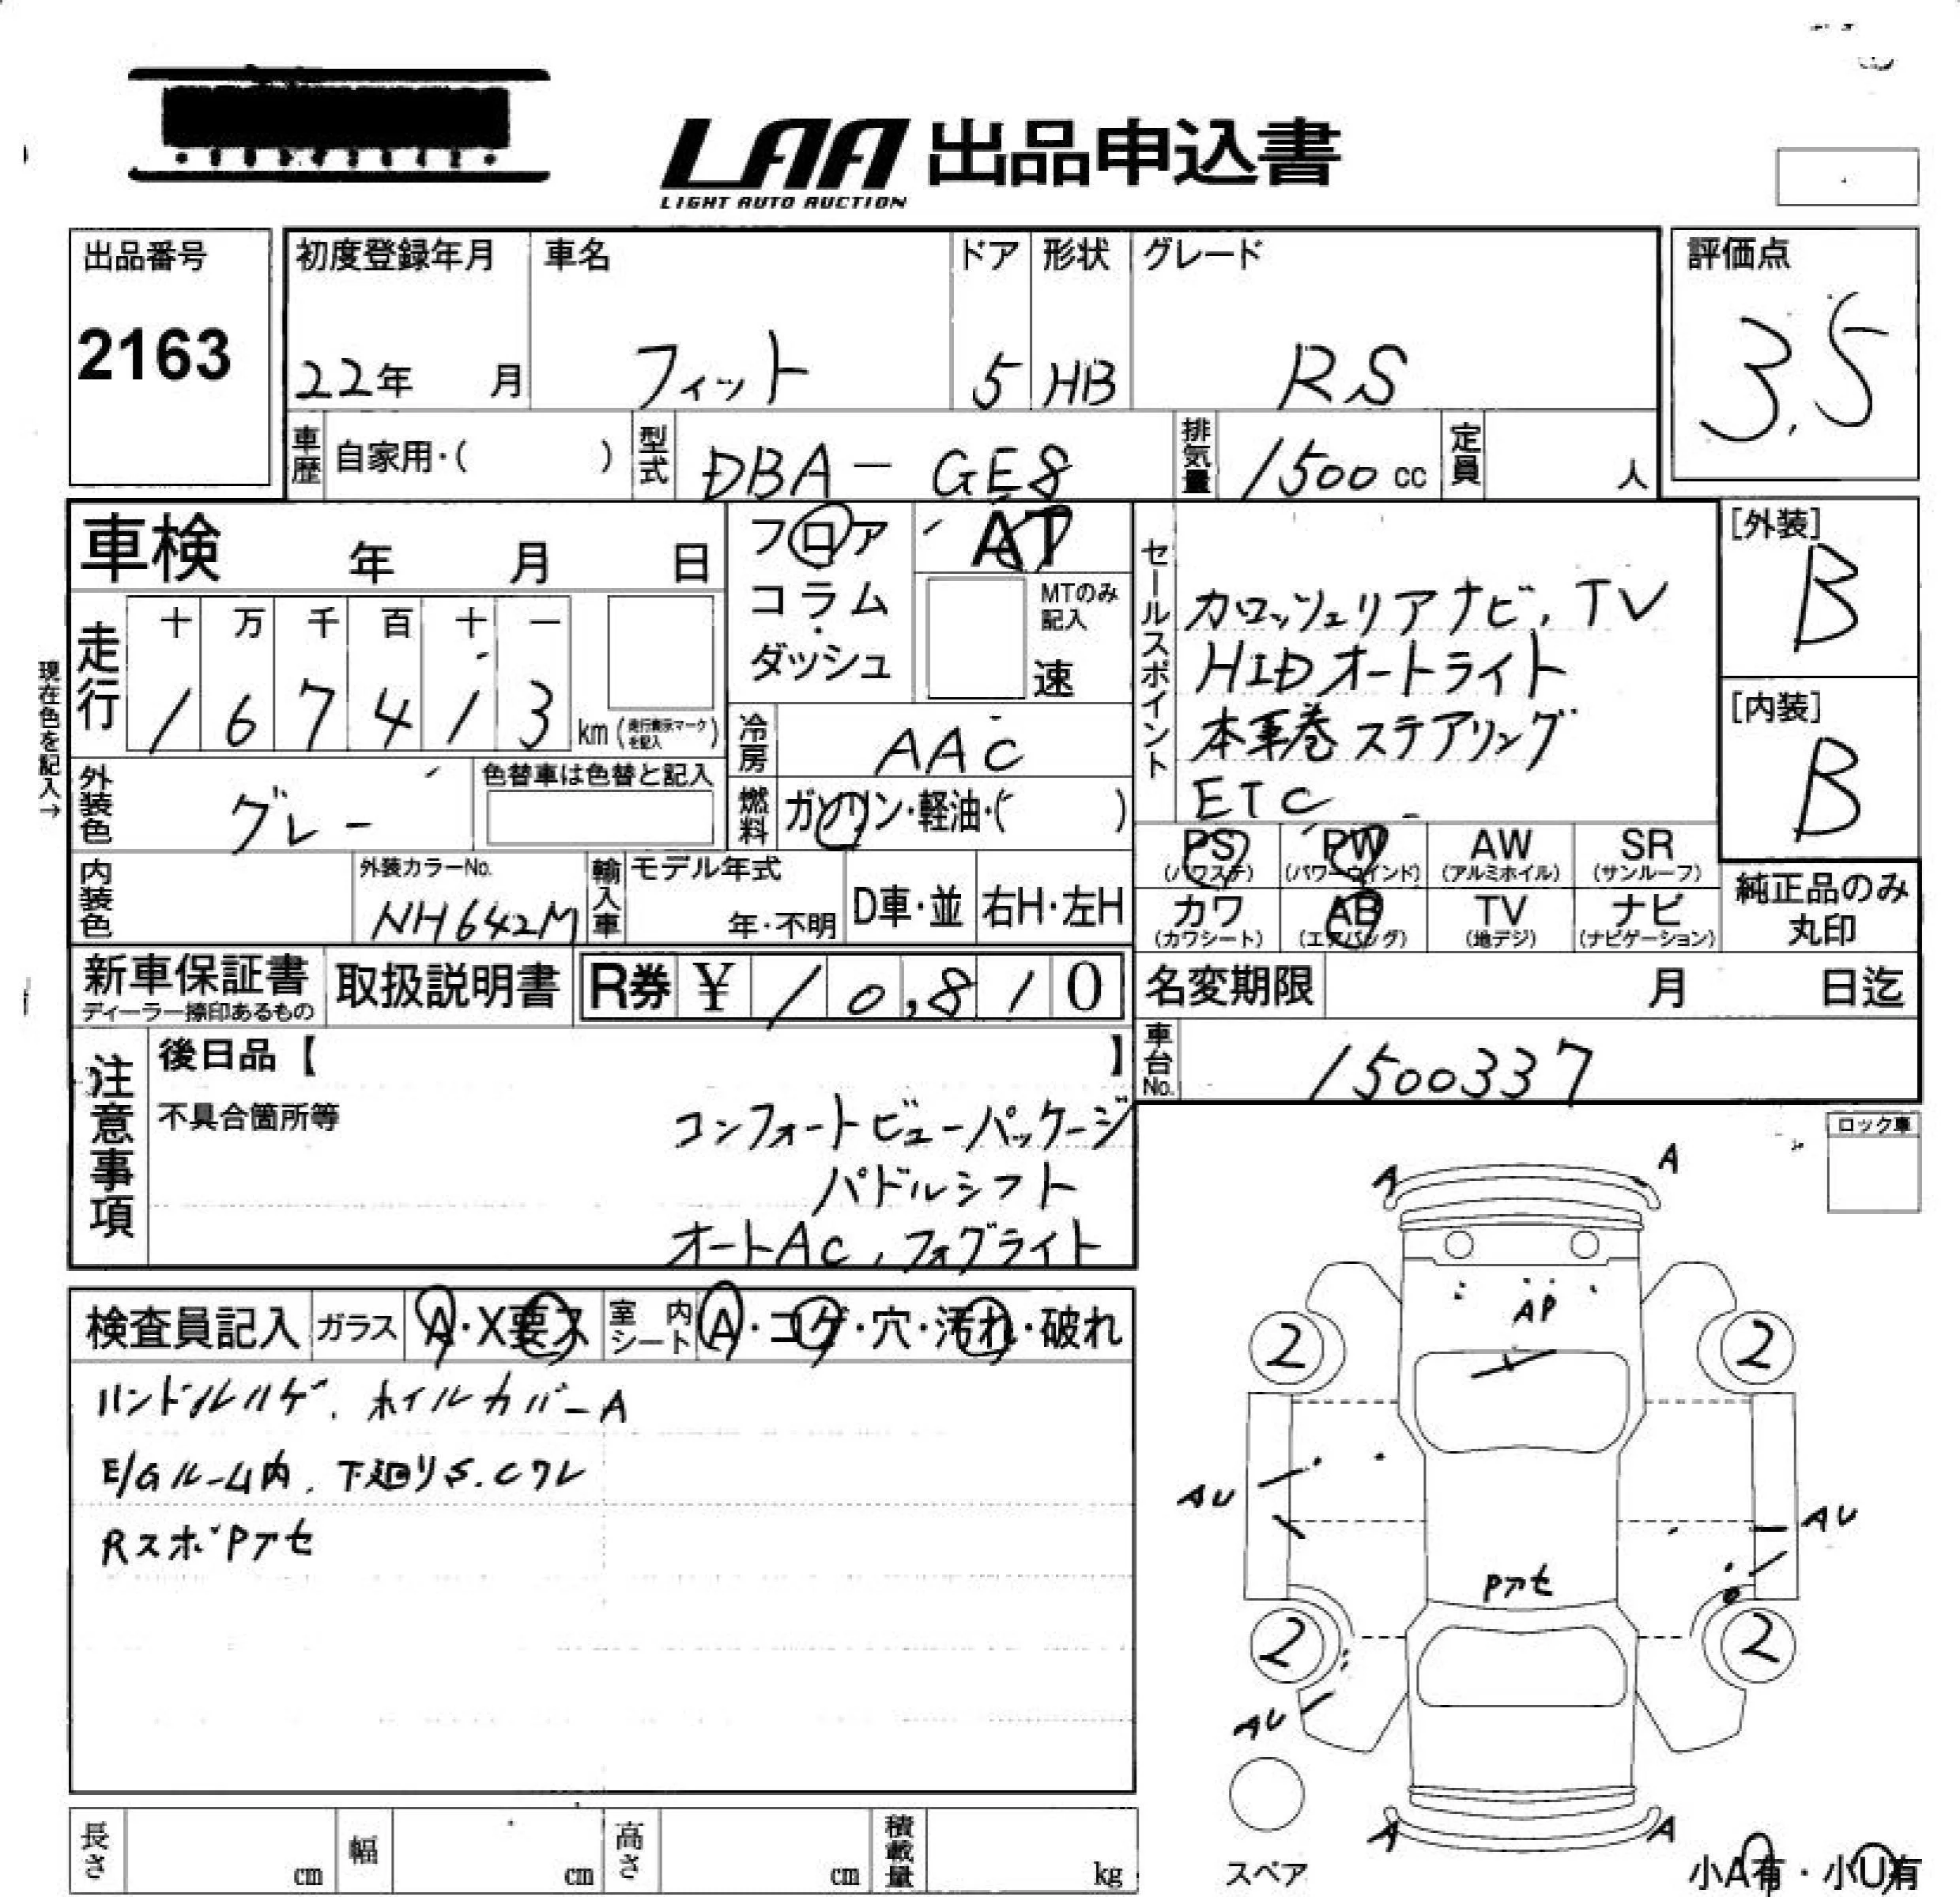 LAA 出品申込書
LIGHT AUTO AUCTION
出品番号
2163
初度登録年月
22年 月
車名
フィット
ドア
5
形状
HB
グレード
RS
評価点
3.5
車歴 自家用・( )
型式 DBA-GE8
排気量 1500cc
定員 人
車検 年 月 日
フロア
コラム
・
ダッシュ
AT
MTのみ
記入
速
走行
十 万 千 百 十 一
1 6 7 4 1 3 km (走行表示マークを記入)
現在色を記入→
冷房 AAC
燃料 ガソリン・軽油・( )
外装色 グレー
色替車は色替と記入
内装色
外装カラーNo.
NH642M
輸入車
モデル年式
年・不明
D車・並
右H・左H
セールスポイント
カロッツェリアナビ, TV
HIDオートライト
本革巻ステアリング
ETC
[外装]
B
[内装]
B
PS (パワステ)
PW (パワーウインド)
AW (アルミホイル)
SR (サンルーフ)
カワ (カワシート)
AB (エアバッグ)
TV (地デジ)
ナビ (ナビゲーション)
純正品のみ
丸印
新車保証書
ディーラー捺印あるもの
取扱説明書
R券 ¥ 10,810
名変期限 月 日迄
車台No. 1500337
注意事項
後日品【 】
不具合箇所等
コンフォートビューパッケージ
パドルシフト
オートAC, フォグライト
ロック車
検査員記入
ガラス A・X要ス
室内シート A・コゲ・穴・汚れ・破れ
ハンドルハゲ, ホイルカバーA
E/Gルーム内, 下廻りS.Cワレ
RスポPアセ
A
A
AP
2
2
AU
AU
Pアセ
2
2
AU
A
A
スペア
小A有・小U有
長さ cm
幅 cm
高さ cm
積載量 kg